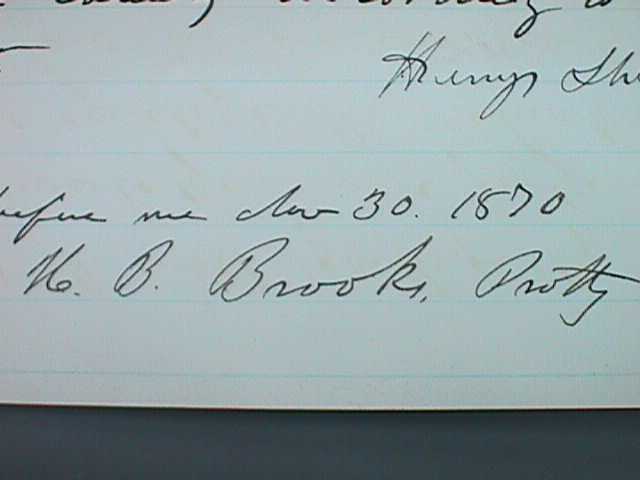 Henry She
before me Nov 30. 1870
H. B. Brooks, Prothy